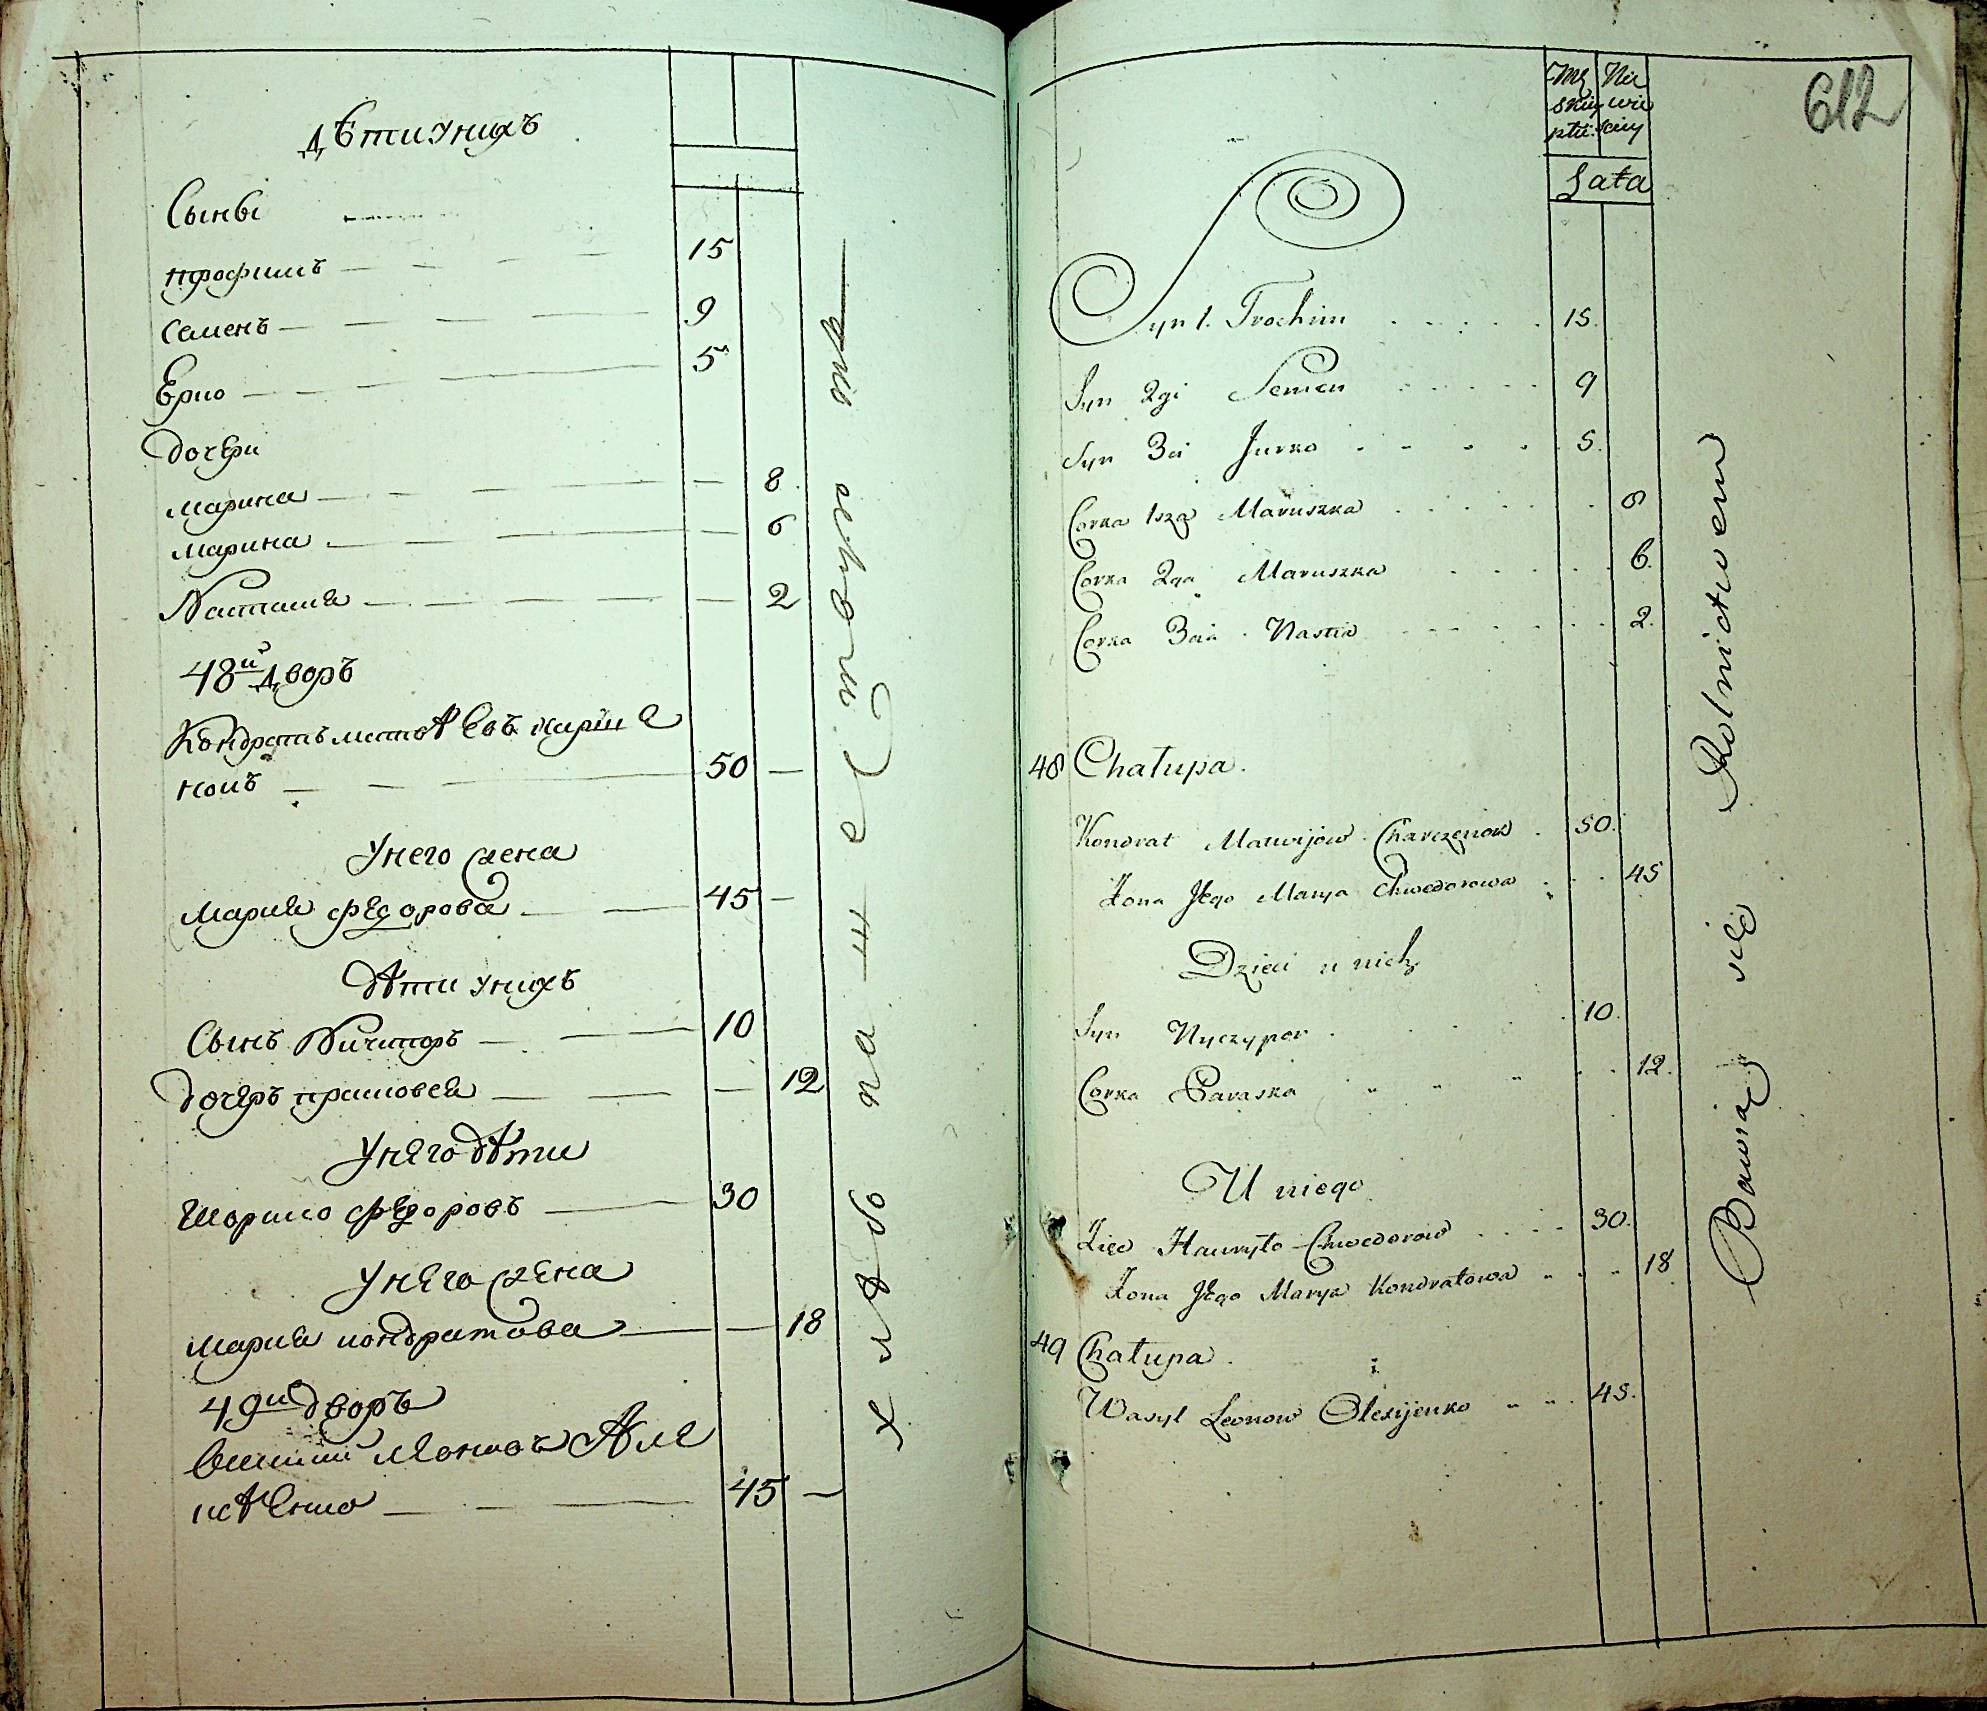 дѣти унихъ
Сыны
трофимъ 15
Семенъ 9
Ерко 5
дочери
марина 8
марина 6
Настасия 2
48й дворъ
Кондратъ матвѣевъ харче
нокъ 50 —
Унего жена
Мария федорова 45 —
дѣти унихъ
Сынъ Ничипоръ 10
дочеръ прасковея — 12
Унего дѣти
федоровъ 30
Унего жена
мария кондратова — 18
49й дворъ
Василий леоновъ Але
ксѣенко 45 —
хлебопа
612
Mę Nie
skiej wie
płci: sciey
Lata
Syn 1. Trochim 15.
Syn 2gi Semen 9
Syn 3ci Jurko 5.
Corka 1sza Maruszka 8
Corka 2ga Maruszka 6.
Corka 3cia Nastia 2.
48 Chałupa.
Kondrat Matwijow Charczenok 50.
Zona Jego Marya Chwedorowa 45
Dzieci u nich
Syn Nyczypor 10.
Corka Paraska 12.
U niego
Zięć Hawryło Chwedorow 30.
Zona Jego Marya Kondratowa 18
49 Chałupa.
Wasyl Leonow Olexijenko 45.
Bawią się Rolnictwem